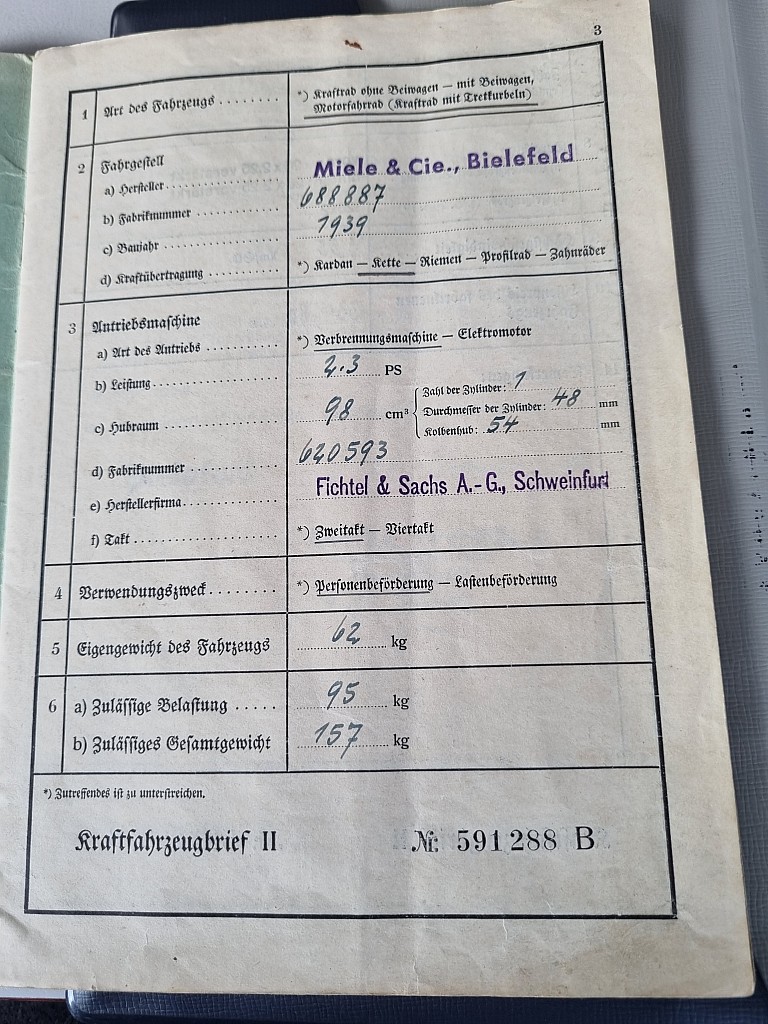 3
1 Art des Fahrzeugs ........ *) Kraftrad ohne Beiwagen — mit Beiwagen,
Motorfahrrad (Kraftrad mit Tretkurbeln)
2 Fahrgestell
a) Hersteller ............ Miele & Cie., Bielefeld
b) Fabriknummer ........ 688887
c) Baujahr ............ 1939
d) Kraftübertragung ........ *) Kardan — Kette — Riemen — Profilrad — Zahnräder
3 Antriebsmaschine
a) Art des Antriebs ........ *) Verbrennungsmaschine — Elektromotor
b) Leistung ............ 2.3 PS
c) Hubraum ............ 98 cm³ { Zahl der Zylinder: 1
Durchmesser der Zylinder: 48 mm
Kolbenhub: 54 mm
d) Fabriknummer ........ 620593
e) Herstellerfirma ........ Fichtel & Sachs A.-G., Schweinfurt
f) Takt ............ *) Zweitakt — Viertakt
4 Verwendungszweck ........ *) Personenbeförderung — Lastenbeförderung
5 Eigengewicht des Fahrzeugs 62 kg
6 a) Zulässige Belastung ..... 95 kg
b) Zulässiges Gesamtgewicht 157 kg
*) Zutreffendes ist zu unterstreichen.
Kraftfahrzeugbrief II Nr. 591288 B